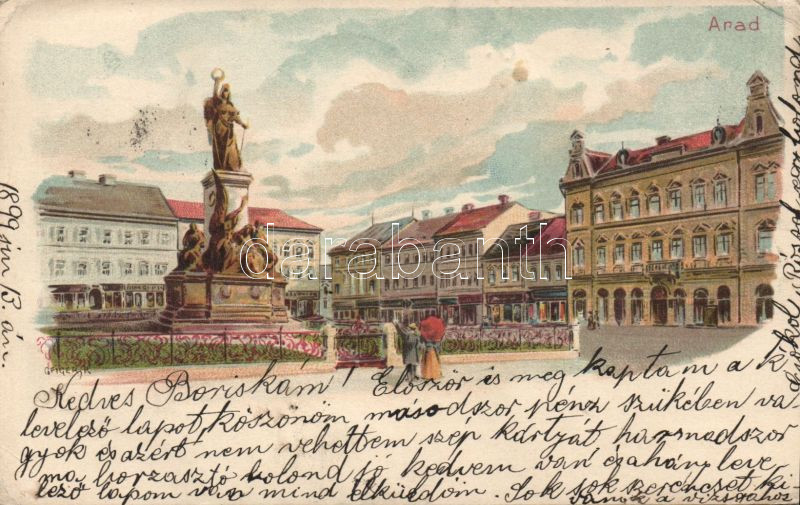 Arad
darabanth
1899 jun 13. án.
Kedves Boriskám! Először is meg kaptam a k
levelező lapot, köszönöm másodszor pénz szükében va
gyok és azért nem vehettem szép kártyát harmadszor
ma borzasztó bolond jó kedvem van és ahány leve
lező lapom van mind elküldöm. Sok sok szerencsét ki
vánok a vizsgához
Csókol Rózsad egy bolond